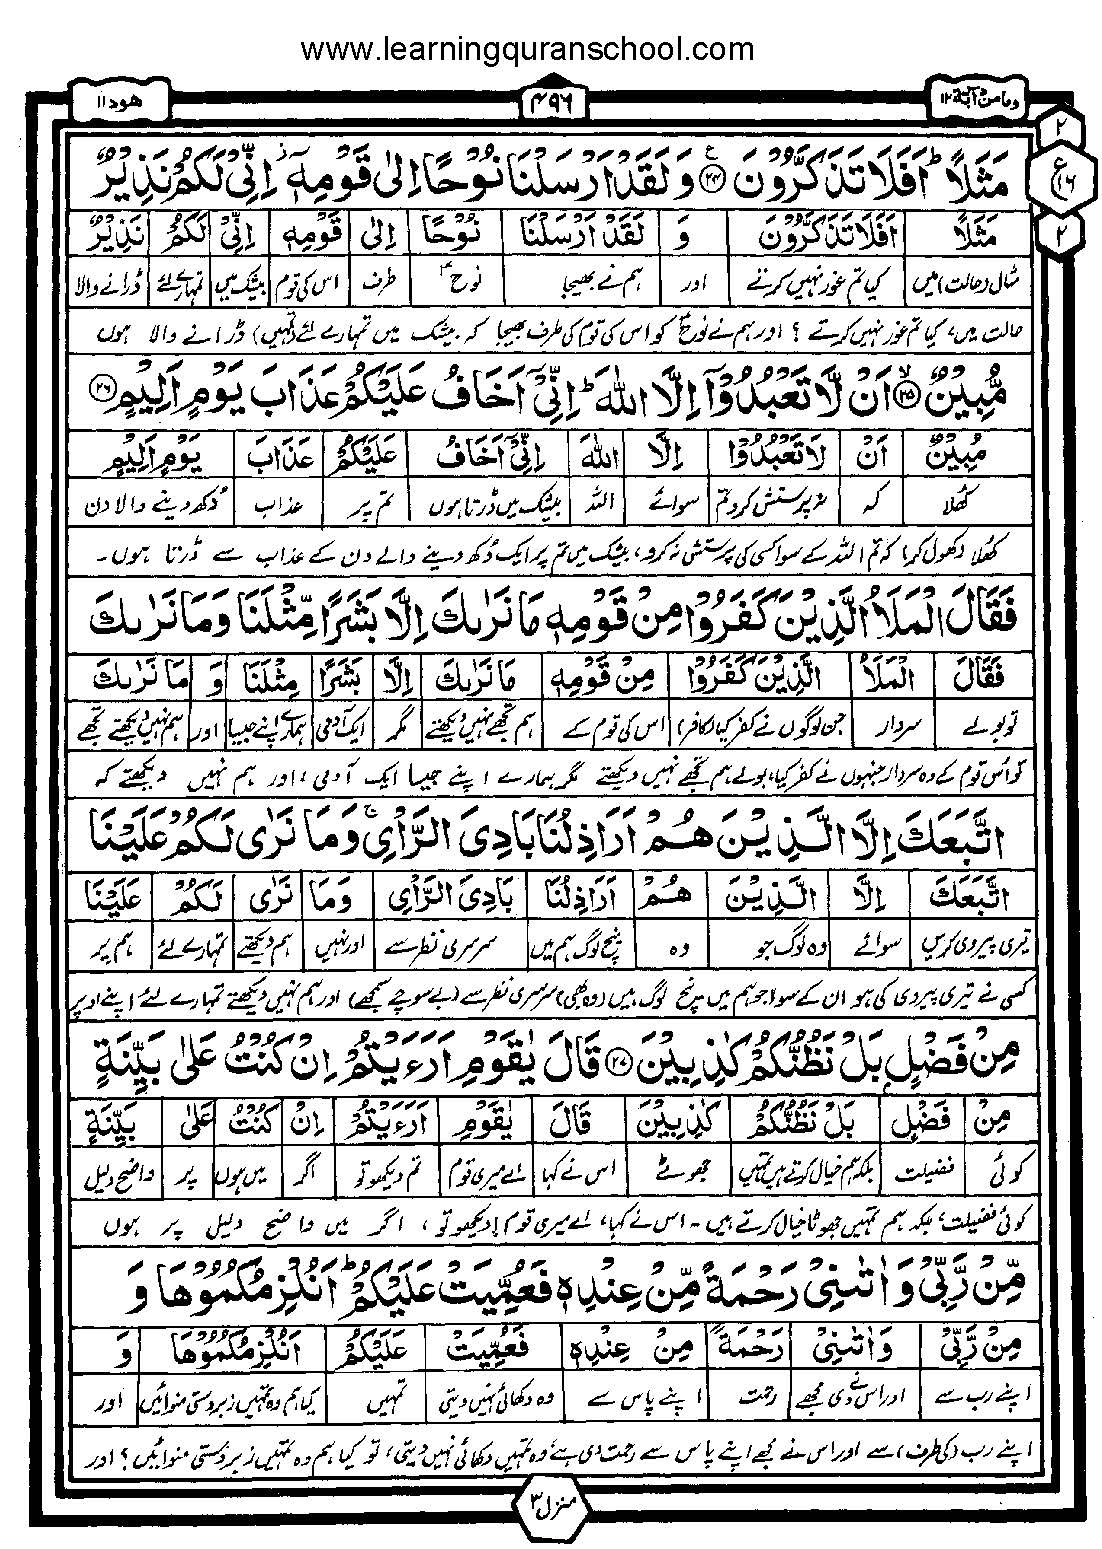 www.learningquranschool.com
وما من دآبة ۱۲
۴۹۶
ھود ۱۱
۲
ع
۱۶
۲
مَثَلًا ؕ اَفَلَا تَذَكَّرُوْنَ ﴿۲۴﴾ وَلَقَدْ اَرْسَلْنَا نُوْحًا اِلٰى قَوْمِهٖۤ ؗ اِنِّىْ لَكُمْ نَذِيْرٌ
مَثَلًا اَفَلَا تَذَكَّرُوْنَ وَ لَقَدْ اَرْسَلْنَا نُوْحًا اِلٰى قَوْمِهٖ اِنِّىْ لَكُمْ نَذِيْرٌ
مثال (حالت) میں کیا تم غور نہیں کرتے اور ہم نے بھیجا نوحؑ طرف اس کی قوم بیشک میں تمہارے لئے ڈرانے والا
حالت میں، کیا تم غور نہیں کرتے ؟ اور ہم نے نوحؑ کو اس کی قوم کی طرف بھیجا کہ بیشک میں تمہارے لئے (تمہیں) ڈرانے والا ہوں
مُّبِيْنٌ ﴿۲۵﴾ اَنْ لَّا تَعْبُدُوْۤا اِلَّا اللّٰهَ ؕ اِنِّىْۤ اَخَافُ عَلَيْكُمْ عَذَابَ يَوْمٍ اَلِيْمٍ ﴿۲۶﴾
مُبِيْنٌ اَنْ لَا تَعْبُدُوْا اِلَّا اللّٰهَ اِنِّىْۤ اَخَافُ عَلَيْكُمْ عَذَابَ يَوْمٍ اَلِيْمٍ
کھلا کہ نہ پرستش کرو تم سوائے اللہ بیشک میں ڈرتا ہوں تم پر عذاب دکھ دینے والا دن
کھلا (کھول کر) کہ تم اللہ کے سوا کسی کی پرستش نہ کرو، بیشک میں تم پر ایک دُکھ دینے والے دن کے عذاب سے ڈرتا ہوں۔
فَقَالَ الْمَلَاُ الَّذِيْنَ كَفَرُوْا مِنْ قَوْمِهٖ مَا نَرٰىكَ اِلَّا بَشَرًا مِّثْلَنَا وَمَا نَرٰىكَ
فَقَالَ الْمَلَاُ الَّذِيْنَ كَفَرُوْا مِنْ قَوْمِهٖ مَا نَرٰىكَ اِلَّا بَشَرًا مِثْلَنَا وَ مَا نَرٰىكَ
تو بولے سردار جن لوگوں نے کفر کیا (کافر) اس کی قوم کے ہم تجھے نہیں دیکھتے مگر ایک آدمی ہمارے اپنے جیسا اور ہم نہیں دیکھتے تجھے
تو اس قوم کے وہ سردار جنہوں نے کفر کیا، بولے ہم تجھے نہیں دیکھتے مگر ہمارے اپنے جیسا ایک آدمی، اور ہم نہیں دیکھتے کہ
اتَّبَعَكَ اِلَّا الَّذِيْنَ هُمْ اَرَاذِلُنَا بَادِىَ الرَّاْىِ ۚ وَمَا نَرٰى لَكُمْ عَلَيْنَا
اتَّبَعَكَ اِلَّا الَّذِيْنَ هُمْ اَرَاذِلُنَا بَادِىَ الرَّاْىِ وَمَا نَرٰى لَكُمْ عَلَيْنَا
تیری پیروی کریں سوائے وہ لوگ جو وہ نیچ لوگ ہم میں سرسری نظر سے اور نہیں ہم دیکھتے تمہارے لئے ہم پر
کسی نے تیری پیروی کی ہو ان کے سوا جو ہم میں نیچ لوگ ہیں (وہ بھی) سرسری نظر سے (بے سوچے سمجھے) اور ہم نہیں دیکھتے تمہارے لئے اپنے اوپر
مِنْ فَضْلٍۢ بَلْ نَظُنُّكُمْ كٰذِبِيْنَ ﴿۲۷﴾ قَالَ يٰقَوْمِ اَرَءَيْتُمْ اِنْ كُنْتُ عَلٰى بَيِّنَةٍ
مِنْ فَضْلٍ بَلْ نَظُنُّكُمْ كٰذِبِيْنَ قَالَ يٰقَوْمِ اَرَءَيْتُمْ اِنْ كُنْتُ عَلٰى بَيِّنَةٍ
کوئی فضیلت بلکہ ہم خیال کرتے ہیں تمہیں جھوٹے اس نے کہا اے میری قوم تم دیکھو تو اگر میں ہوں پر واضح دلیل
کوئی فضیلت، بلکہ ہم تمہیں جھوٹا خیال کرتے ہیں۔ اس نے کہا، اے میری قوم! دیکھو تو، اگر میں واضح دلیل پر ہوں
مِّنْ رَّبِّىْ وَاٰتٰىنِىْ رَحْمَةً مِّنْ عِنْدِهٖ فَعُمِّيَتْ عَلَيْكُمْ ؕ اَنُلْزِمُكُمُوْهَا وَ
مِنْ رَّبِّىْ وَاٰتٰىنِىْ رَحْمَةً مِنْ عِنْدِهٖ فَعُمِّيَتْ عَلَيْكُمْ اَنُلْزِمُكُمُوْهَا وَ
اپنے رب سے اور اس نے دی مجھے رحمت اپنے پاس سے وہ دکھائی نہیں دیتی تمہیں کیا ہم وہ تمہیں زبردستی منوائیں اور
اپنے رب (کی طرف) سے اور اس نے مجھے اپنے پاس سے رحمت دی ہے، وہ تمہیں دکھائی نہیں دیتی، تو کیا ہم وہ تمہیں زبردستی منوائیں؟ اور
منزل ۳